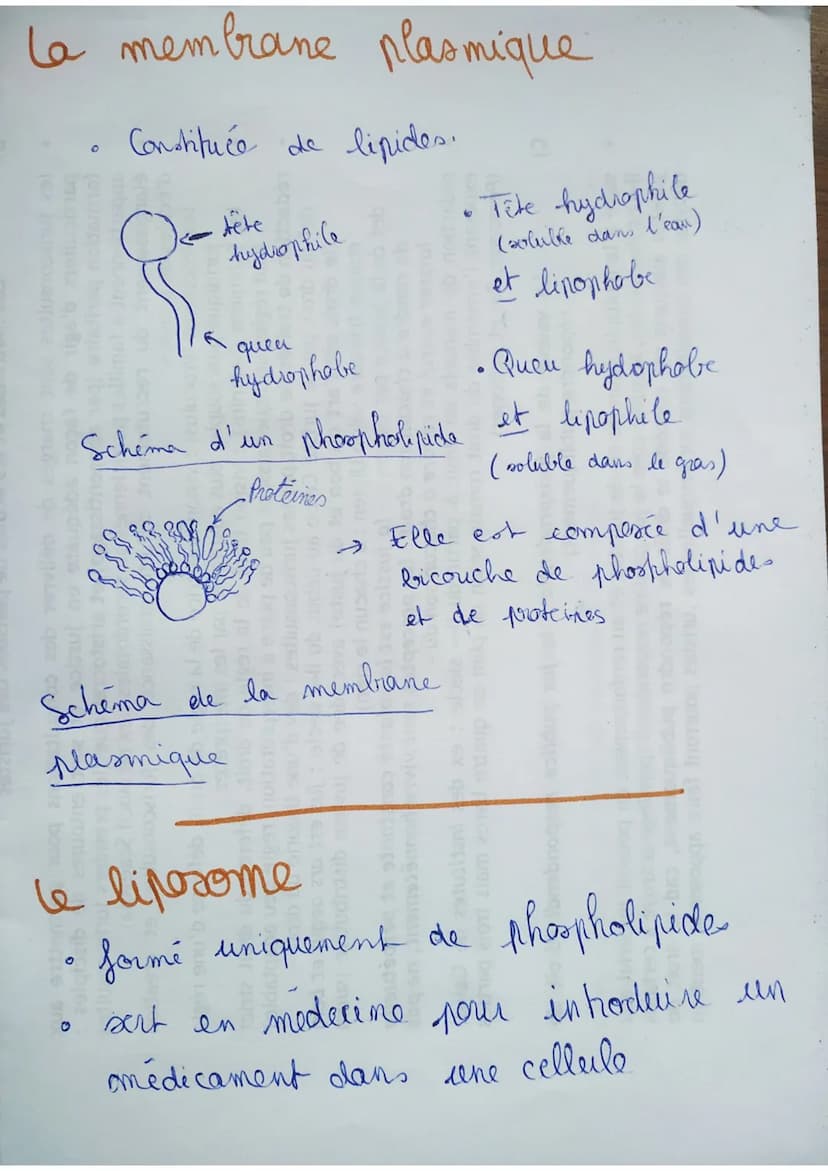 La membrane plasmique
• Constituée de lipides.
tête
hydrophile
queu
hydrophobe
Schéma d'un phospholipide
• Tête hydrophile
(soluble dans l'eau)
et lipophobe
• Queu hydrophobe
et lipophile
(soluble dans le gras)
Protéines
→ Elle est composée d'une
bicouche de phospholipides
et de protéines
Schéma de la membrane
plasmique
Le liposome
• formé uniquement de phospholipides
• sert en médecine pour introduire un
médicament dans une cellule